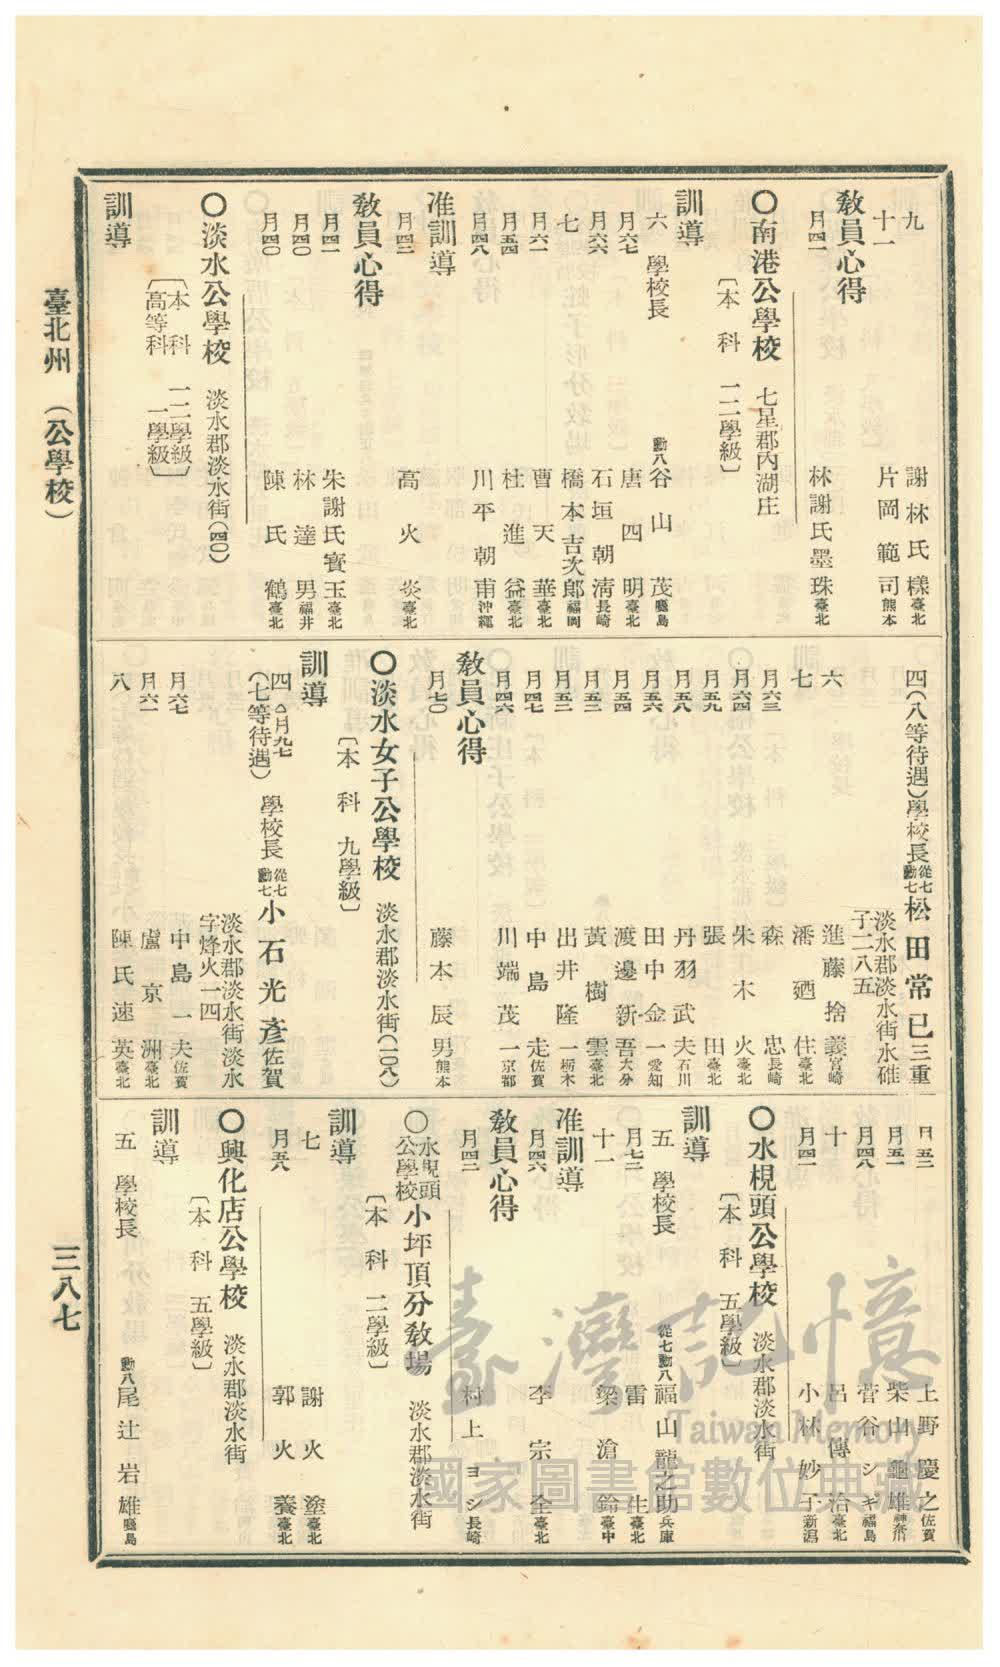 九 謝林氏樣臺北
十一 片岡範司熊本
教員心得
月四一 林謝氏墨珠臺北
〇南港公學校 七星郡內湖庄
〔本科 一二學級〕
訓導
六 學校長 勳八谷山茂
月六七 唐四明臺北
月六六 石垣朝淸長崎
七 橋本吉次郎福岡
月六一 曹天華臺北
月五四 杜進益臺北
月四八 川平朝甫沖繩
准訓導
月四二 高火炎臺北
教員心得
月四一 朱謝氏寶玉臺北
月四〇 林達男福井
月四〇 陳氏鶴臺北
〇淡水公學校 淡水郡淡水街(四〇)
〔本科 一二學級
高等科 一學級〕
訓導
四(八等待遇)學校長從七勳七松田常已三重
淡水郡淡水街水碓
子二八五
六 進藤捨義宮崎
七 潘廼住臺北
月六三 森忠長崎
月六四 朱木火臺北
月五九 張田臺北
月五八 丹羽武夫石川
月五六 田中金一愛知
月五四 渡邊新吾大分
月五三 黃樹雲臺北
月五二 出井隆一栃木
月四七 中島走佐賀
月四六 川端茂一京都
教員心得
月七〇 藤本辰男熊本
〇淡水女子公學校 淡水郡淡水街(二〇八)
〔本科 九學級〕
訓導
四 月九七
(七等待遇) 學校長從七勳七小石光彥佐賀
淡水郡淡水街淡水
字烽火一四
月六七 中島一夫佐賀
月六一 盧京洲臺北
八 陳氏速英臺北
月五二 上野慶之佐賀
月五一 柴山龜雄
月四八 菅谷シギ福島
十 呂傳治臺北
月四一 小林妙子新潟
〇水梘頭公學校 淡水郡淡水街
〔本科 五學級〕
訓導
五 學校長 從七勳八福山龍之助兵庫
月七二 雷生臺北
十一 梁滄鈴臺中
准訓導
月四六 李宗全臺北
教員心得
月四二 村上ヨシ長崎
〇水梘頭公學校小坪頂分教場 淡水郡淡水街
〔本科 二學級〕
訓導
七 謝火塗臺北
月五八 郭火養臺北
〇興化店公學校 淡水郡淡水街
〔本科 五學級〕
訓導
五 學校長 勳八尾辻岩雄
臺北州 (公學校)
三八七
臺灣記憶
Taiwan Memory
國家圖書館數位典藏